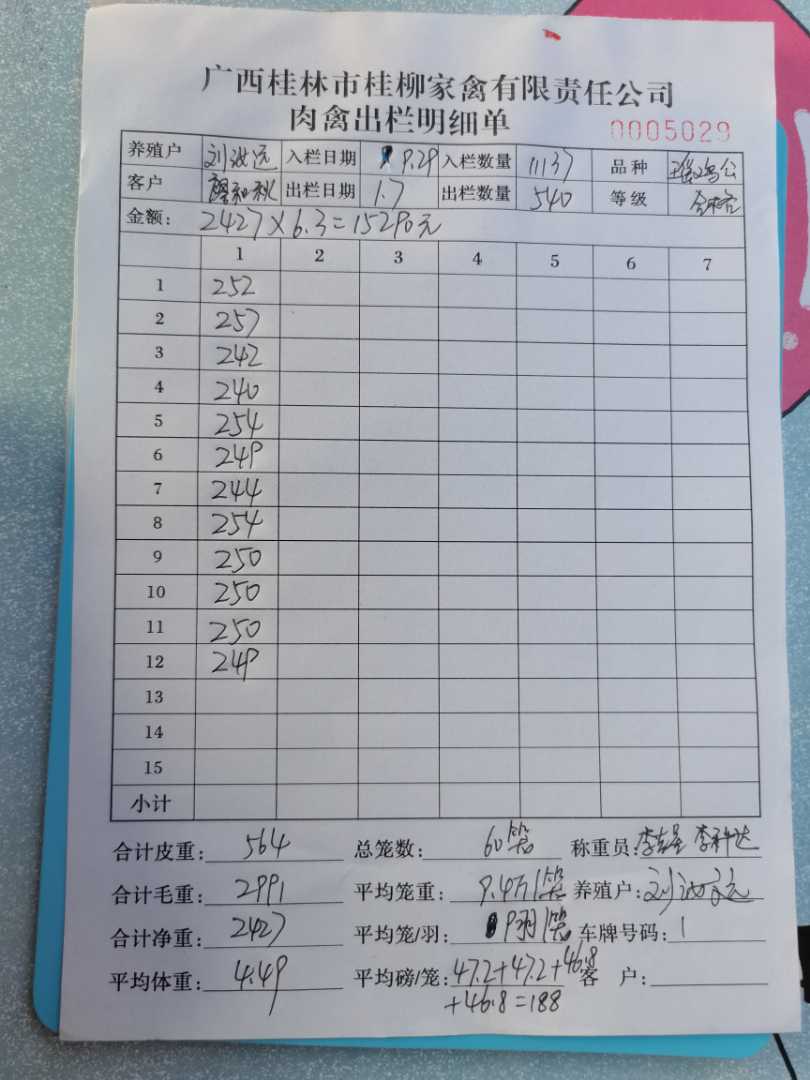 广西桂林市桂柳家禽有限责任公司
肉禽出栏明细单 0005029
养殖户 刘汝远 入栏日期 9.29 入栏数量 11137 品种 瑶鸡公
客户 廖和秋 出栏日期 1.7 出栏数量 540 等级
金额: 2427×6.3=15290元
1 2 3 4 5 6 7
1 252
2 257
3 242
4 240
5 254
6 249
7 244
8 254
9 250
10 250
11 250
12 249
13
14
15
小计
合计皮重: 564 总笼数: 60笼 称重员:
合计毛重: 2991 平均笼重: 9.4斤/笼 养殖户:
合计净重: 2427 平均笼/羽: 9羽/笼 车牌号码: 1
平均体重: 4.49 平均磅/笼: 47.2+47.2+46.8 客 户:
+46.8=188